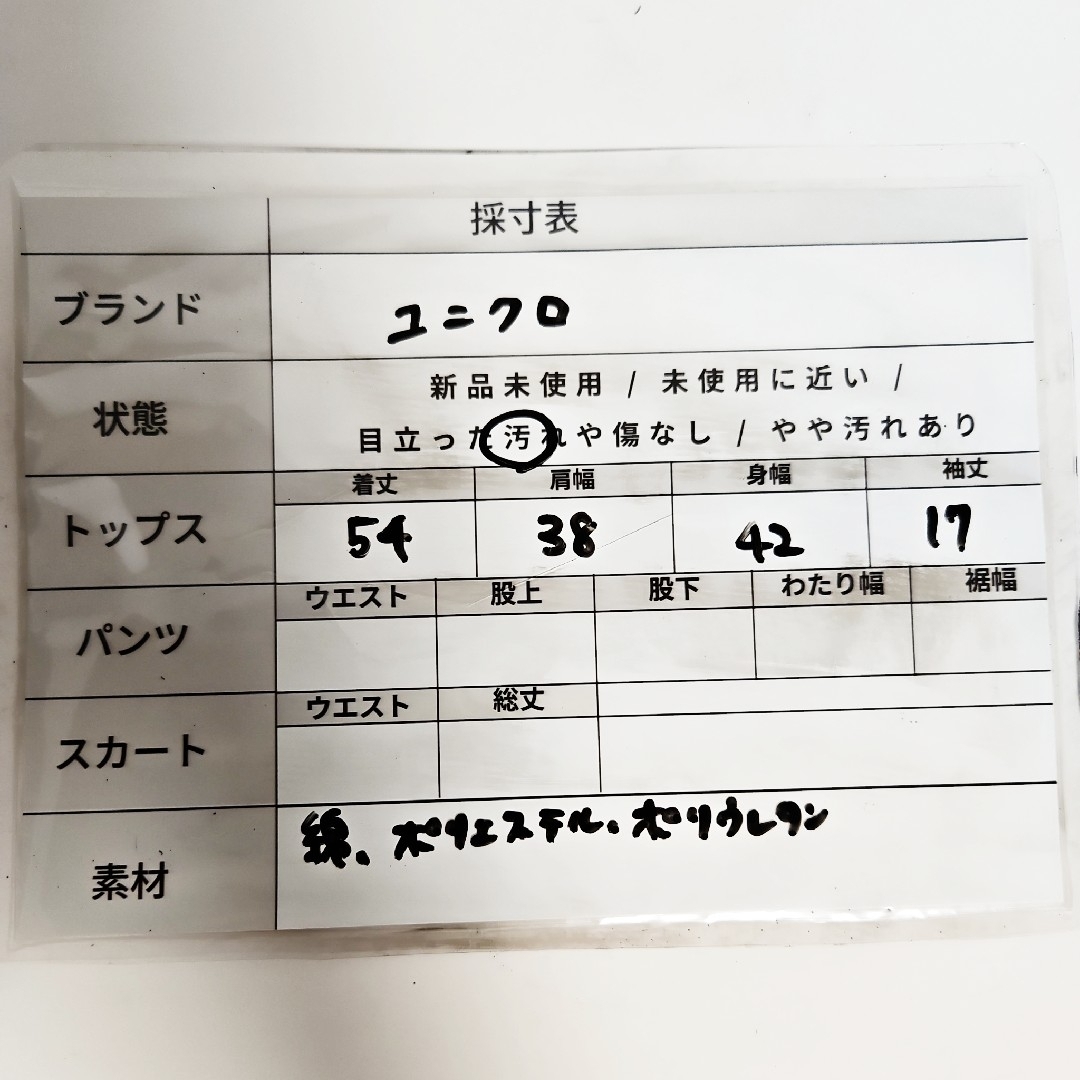 採寸表
ブランド ユニクロ
状態 新品未使用 / 未使用に近い /
目立った汚れや傷なし / やや汚れあり
着丈 肩幅 身幅 袖丈
トップス 54 38 42 17
ウエスト 股上 股下 わたり幅 裾幅
パンツ
ウエスト 総丈
スカート
素材 綿、ポリエステル、ポリウレタン